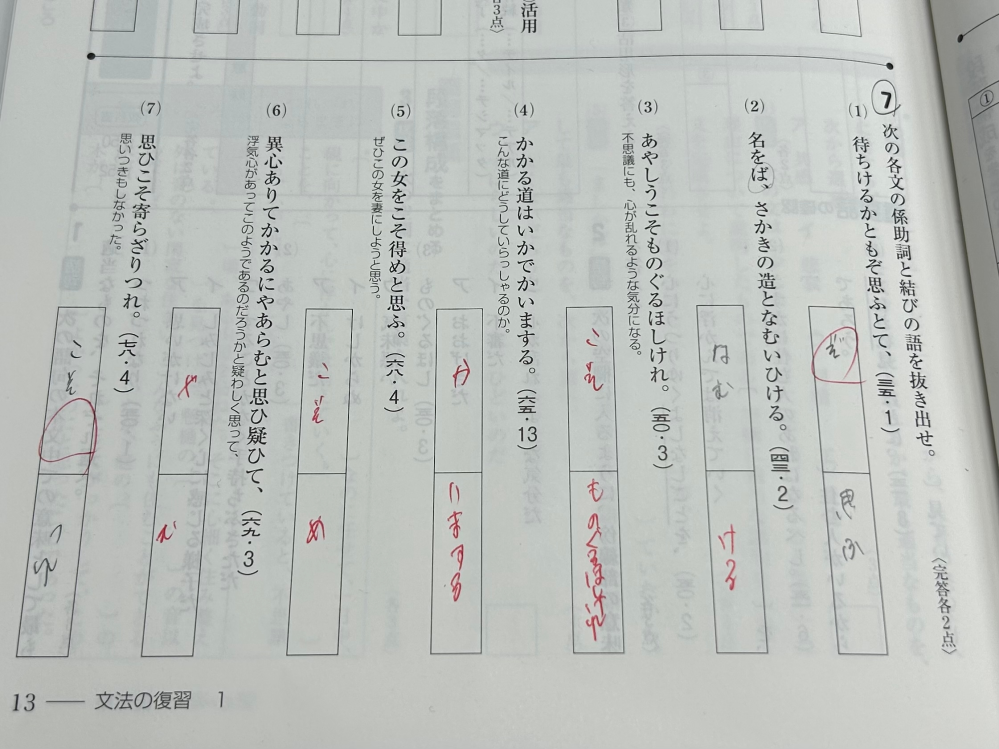 活用
各3点〉
7 次の各文の係助詞と結びの語を抜き出せ。
〈完答各2点〉
(1) 待ちけるかともぞ思ふとて、(三五・1)
ぞ
思ふ
(2) 名をば、さかきの造となむいひける。(四三・2)
なむ
ける
(3) あやしうこそものぐるほしけれ。(五〇・3)
不思議にも、心が乱れるような気分になる。
こそ
ものぐるほしけれ
(4) かかる道はいかでかいまする。(六五・13)
こんな道にどうしていらっしゃるのか。
か
いまする
(5) この女をこそ得めと思ふ。(六八・4)
ぜひこの女を妻にしようと思う。
こそ
め
(6) 異心ありてかかるにやあらむと思ひ疑ひて、(六九・3)
浮気心があってこのようであるのだろうかと疑わしく思って、
や
む
(7) 思ひこそ寄らざりつれ。(七八・4)
思いつきもしなかった。
こそ
つれ
13 — 文法の復習 1
①